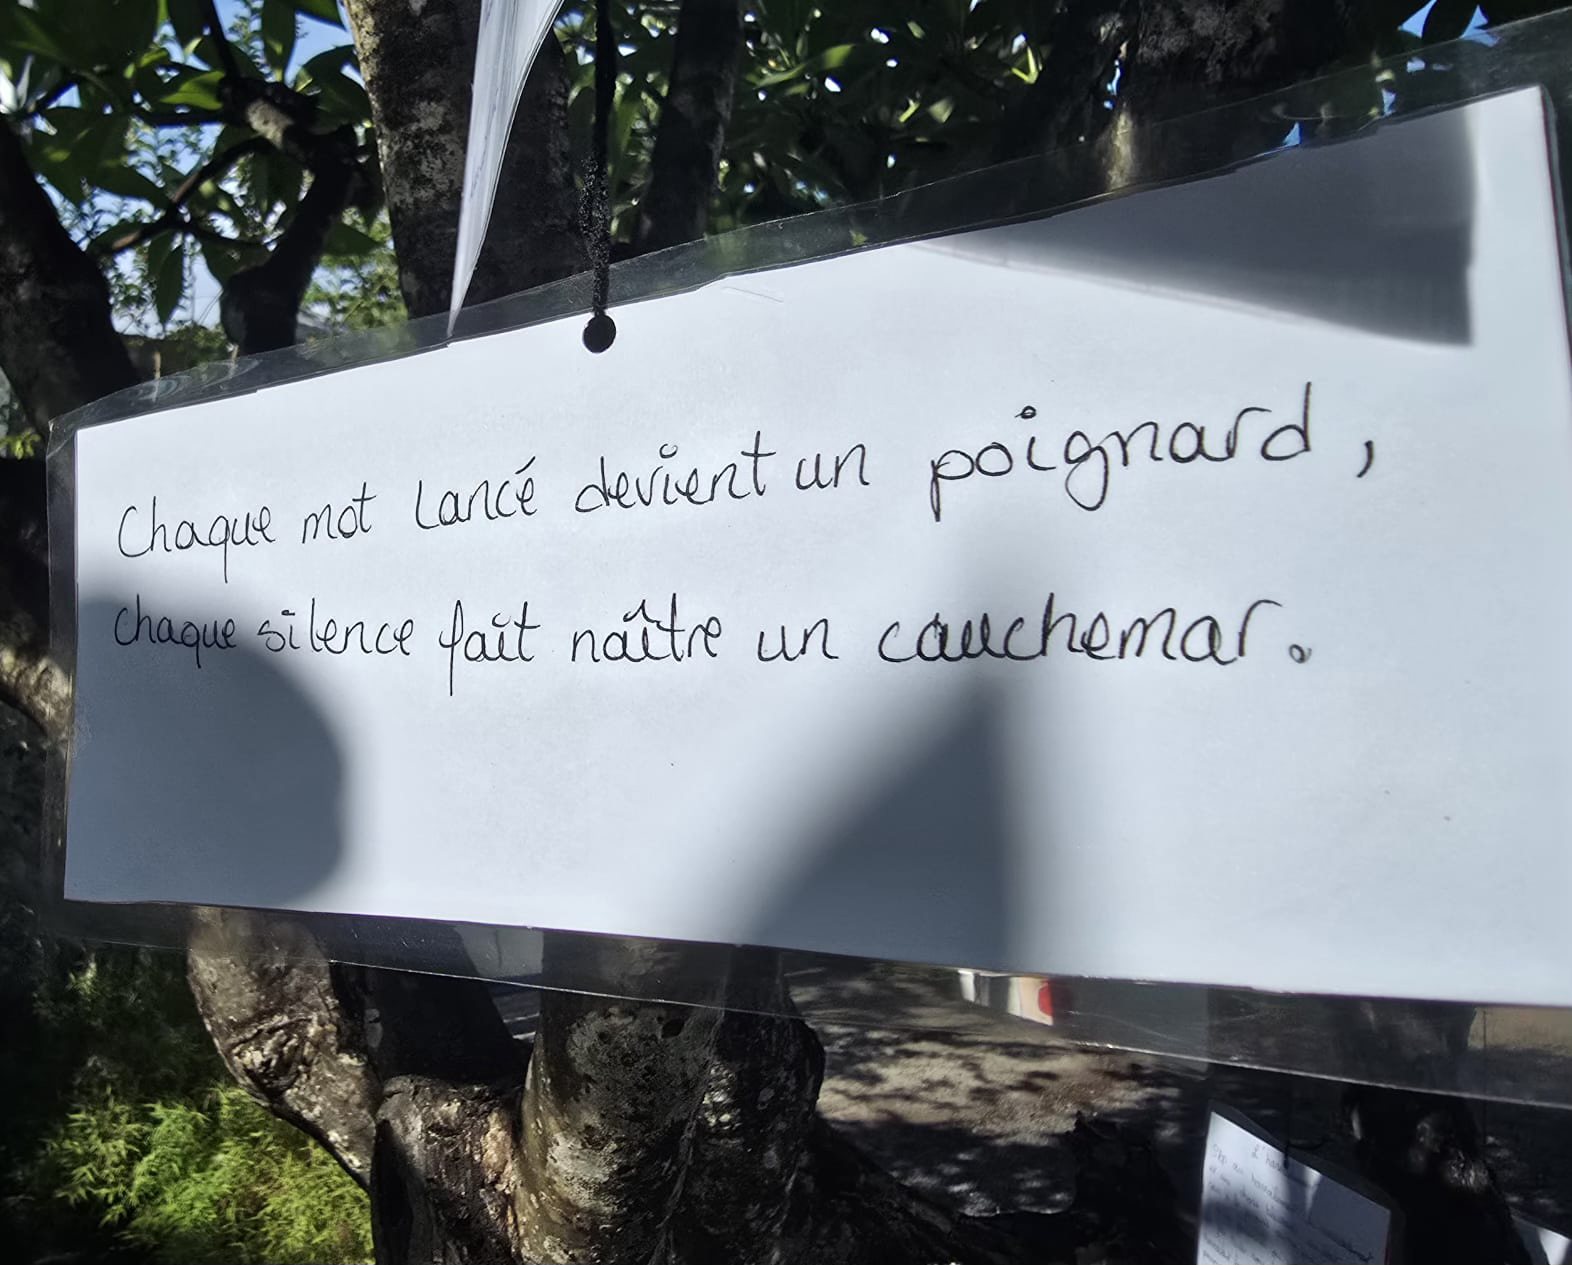 Chaque mot lancé devient un poignard,
chaque silence fait naître un cauchemar.